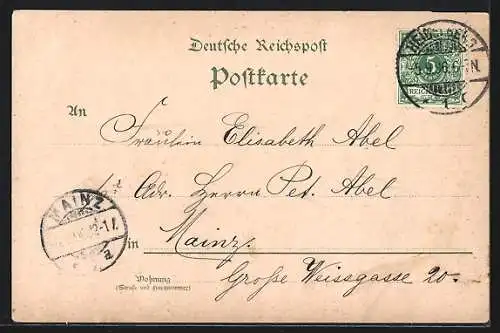 Deutsche Reichspost
Postkarte
HEIDELBERG
5
REICH
An
Fräulein Elisabeth Abel
Adr. Herrn Pet. Abel
MAINZ
in Mainz.
Große Weissgasse 20.
Wohnung
(Straße und Hausnummer)